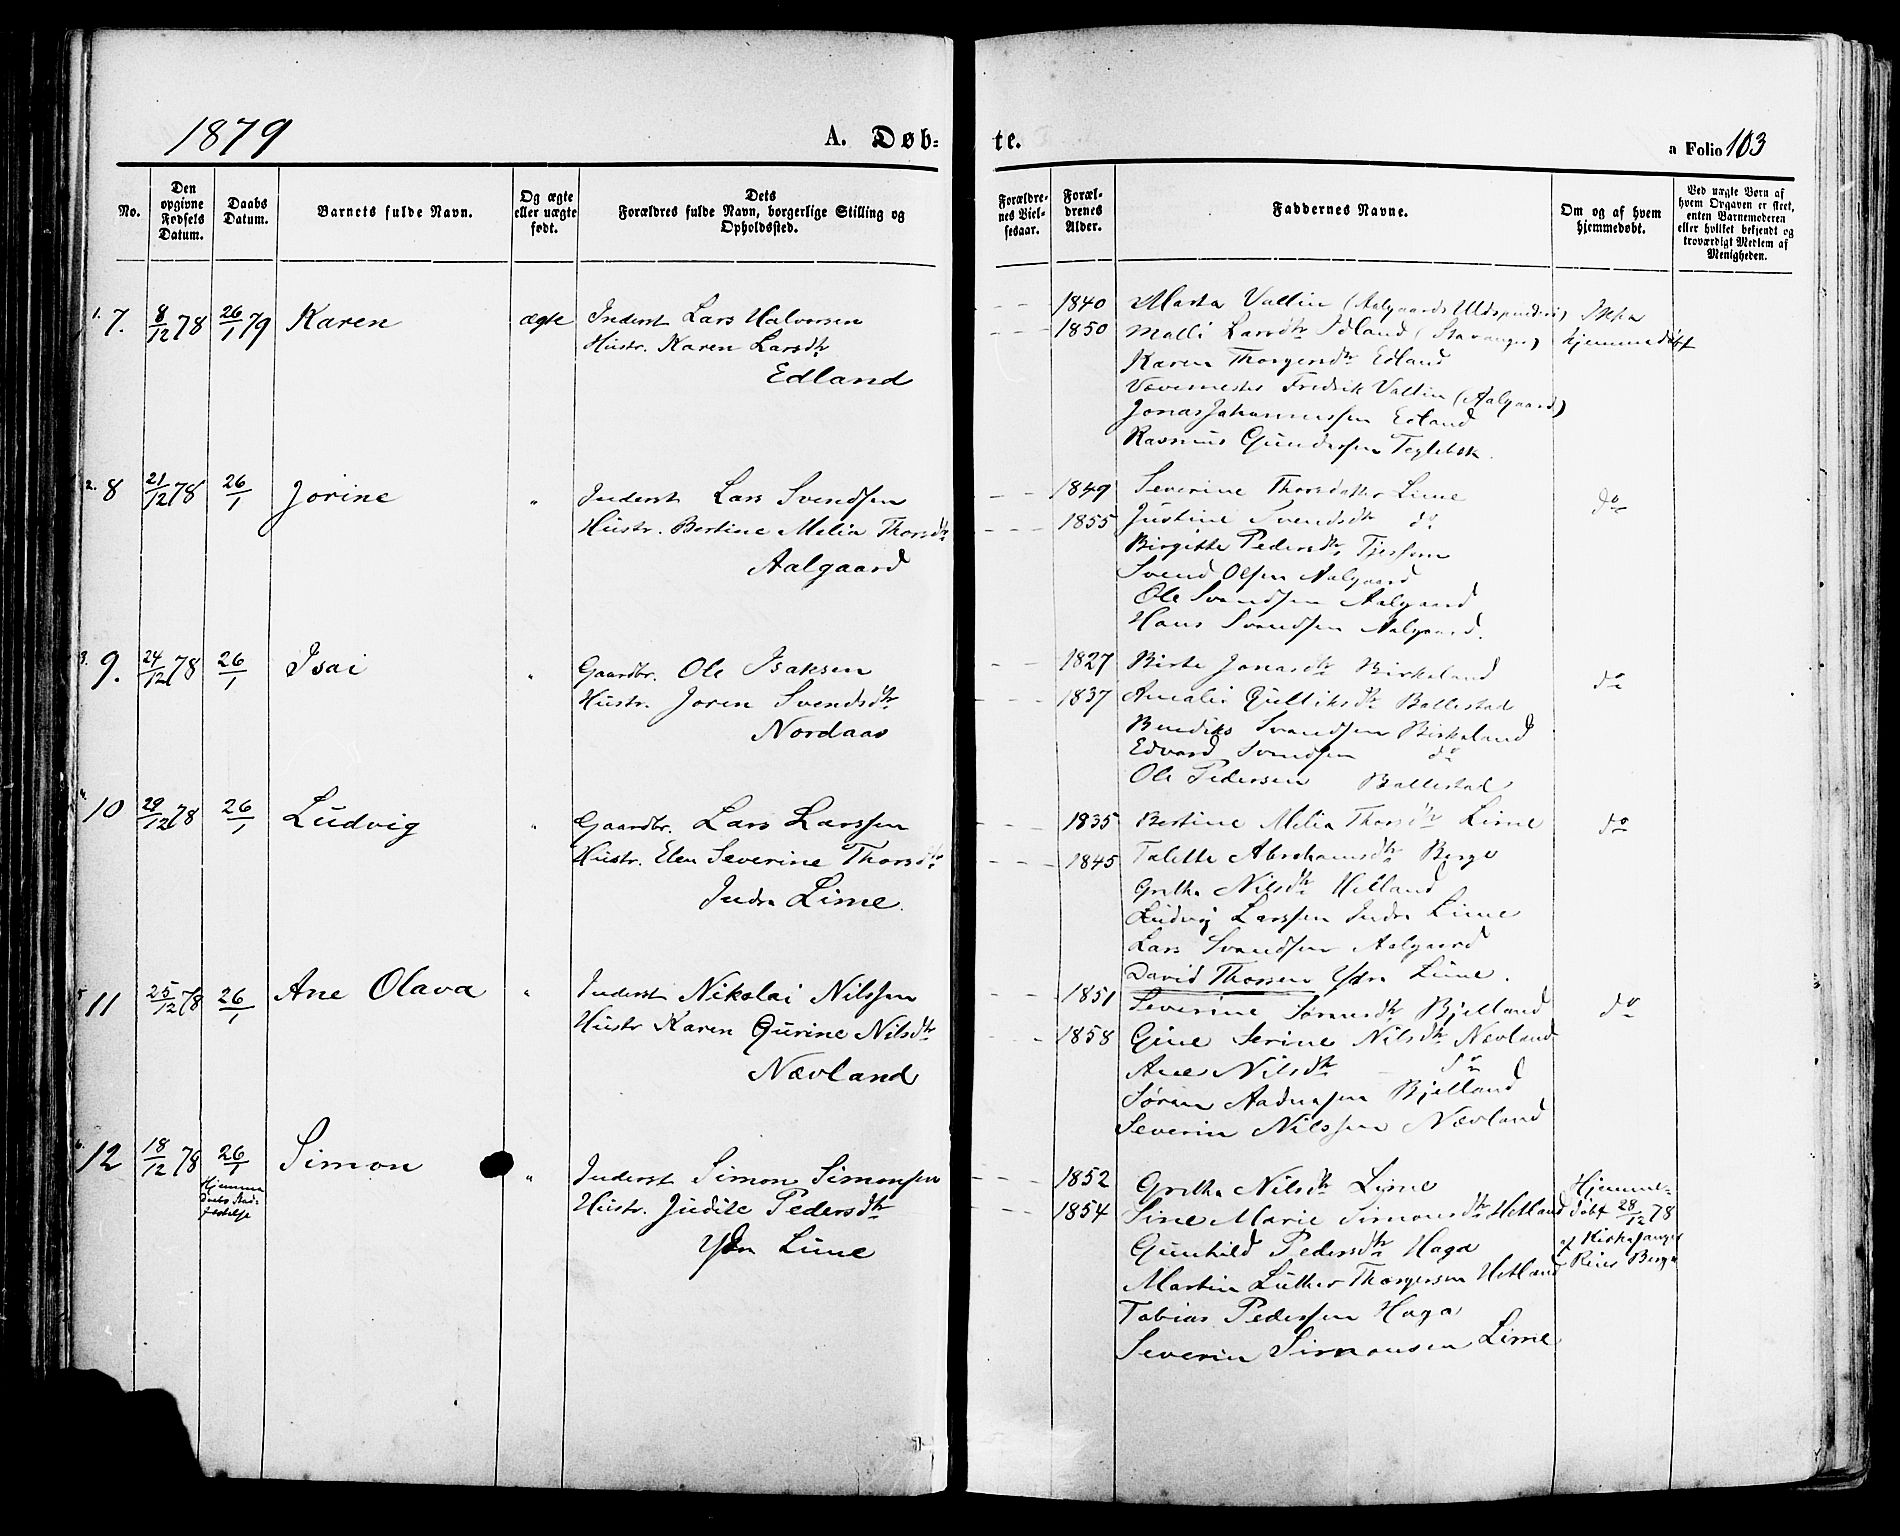 1879
A. Døb-
te.
a Folio 103
No.
Den opgivne Fødsels Datum.
Daabs Datum.
Barnets fulde Navn.
Og ægte eller uægte født.
Dets Forældres fulde Navn, borgerlige Stilling og Opholdssted.
Forældrenes Vielsesaar.
Forældrenes Alder.
Faddernes Navne.
Om og af hvem hjemmedøbt.
Ved uægte Børn af hvem Opgaven er skeet, enten Barnemoderen eller hvilket bekjendt og troværdigt Medlem af Menigheden.
1. 7. 8/12 78 26/1 79 Karen ægte Inderst Lars Halvorsen
Hustr. Karen Larsdtr
Edland
1840
1850
Marta Vallin (Aalgaards Uldspinderi)
Malli Larsdtr Edland (Stavanger)
Karen Thorgersdtr Edland
Vævemester Fredrik Vallin (Aalgaard)
Jonas Johannessen Edland
Rasmus Gundersen
Ikke
hjemmedøbt
2. 8 21/12 78 26/1 Jorine " Inderst Lars Svendsen
Hustr. Bertine Melia Thorsdtr
Aalgaard
1849
1855
Severine Thorsdatter Lime
Justine Svendsdtr do
Birgitte Pedersdtr
Svend Olsen Aalgaard
Ole Svendsen Aalgaard
Hans Svendsen Aalgaard.
do
3. 9. 24/12 78 26/1 Isai " Gaardbr. Ole Isaksen
Hustr. Joren Svendsdtr
Nordaas
1827
1837
Birte Jonasdtr Birkeland
Amalie Gulliksdtr Ballestad
Bendiks Svendsen Birkeland
Edvard Svendsen do
Ole Pedersen Ballestad
do
4. 10 29/12 78 26/1 Ludvig " Gaardbr. Lars Larssen
Hustr. Elen Severine Thorsdtr
Indre Lime.
1835
1845
Bertine Melia Thorsdtr Lime
Talette Abrahamsdtr Berge
Grethe Nilsdtr Hetland
Ludvig Larssen Indre Lime
Lars Svendsen Aalgaard
David Thorsen Ydre Lime.
do
5 11 25/12 78 26/1 Ane Olava " Inderst Nikolai Nilssen
Hustr Karen Gurine Nilsdtr
Nævland
1851
1858
Severine Bjelland
Gine Serine Nilsdtr Nævland
Ane Nilsdtr do
Søren Aadnesen Bjelland
Severin Nilssen Nævland
do
6. 12 18/12 78 26/1 Simon " Inderst Simon Simonsen
Hjemmedaabs Stadfestelse
Hustr. Judite Pedersdtr
Ydre Lime
1852
1854
Grethe Nilsdtr Lime
Sine Marie Simonsdtr Hetland
Gunhild Pedersdtr Haga
Martin Luther Thorgersen Hetland
Tobias Pedersen Haga
Severin Simonsen Lime
Hjemme-
døbt 28/12 78
af Kirkesanger
Berge